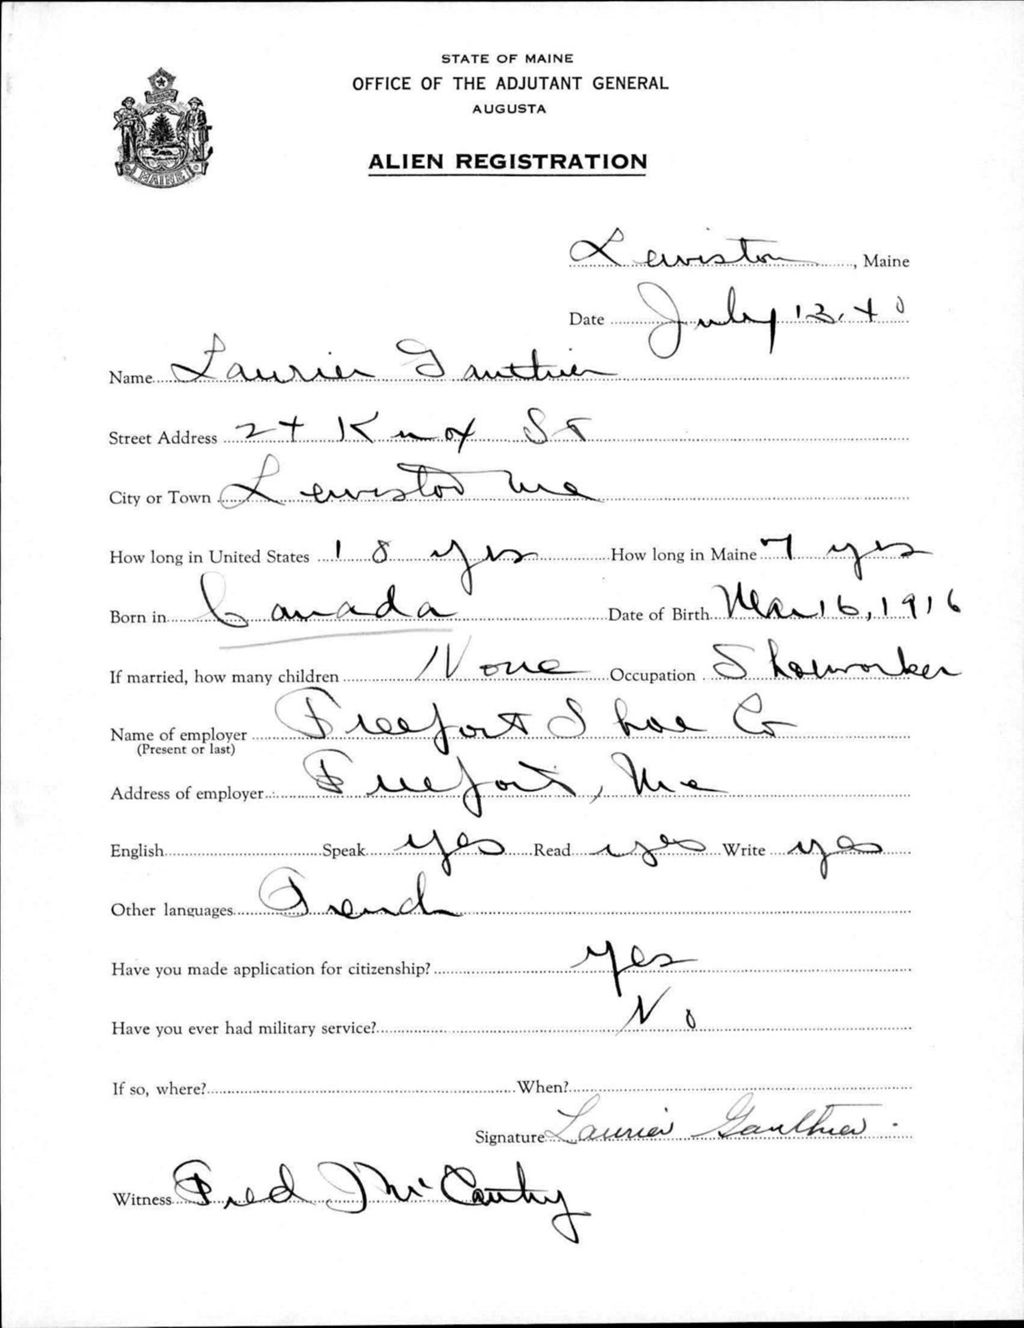 STATE OF MAINE
OFFICE OF THE ADJUTANT GENERAL
AUGUSTA
MAINE
ALIEN REGISTRATION
Lewiston, Maine
Date July 13, 40
Name Laurier Gauthier
Street Address 24 Knox St
City or Town Lewiston Me
How long in United States 18 yrs How long in Maine 7 yrs
Born in Canada Date of Birth Mar 16, 1916
If married, how many children None Occupation Shoeworker
Name of employer Freeport Shoe Co
(Present or last)
Address of employer Freeport, Me
English Speak yes Read yes Write yes
Other languages French
Have you made application for citizenship? Yes
Have you ever had military service? No
If so, where? When?
Signature Laurier Gauthier.
Witness Fred J McCarthy